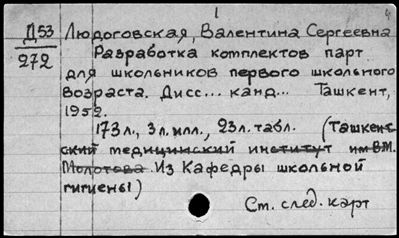 1
Д53 Людоговская, Валентина Сергеевна
272 Разработка комплектов парт
для школьников первого школьного
возраста. Дисс... канд... Ташкент,
1952.
173 л., 3 л. илл., 23 л. табл. (Ташкент-
ский медицинский институт им В.М.
Молотова. Из Кафедры школьной
гигиены)
См. след. карт